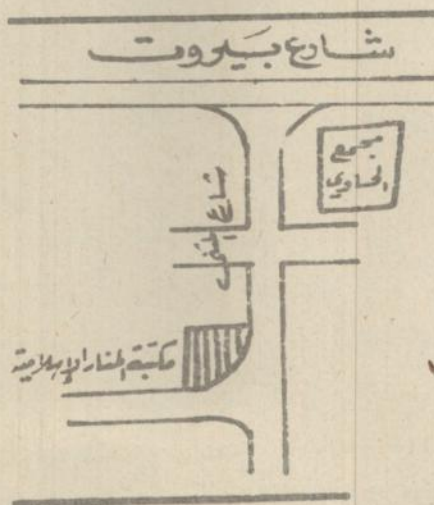 شارع بيروت
مجمع
الحساوي
شارع المثنى
مكتبة المنار الإسلامية